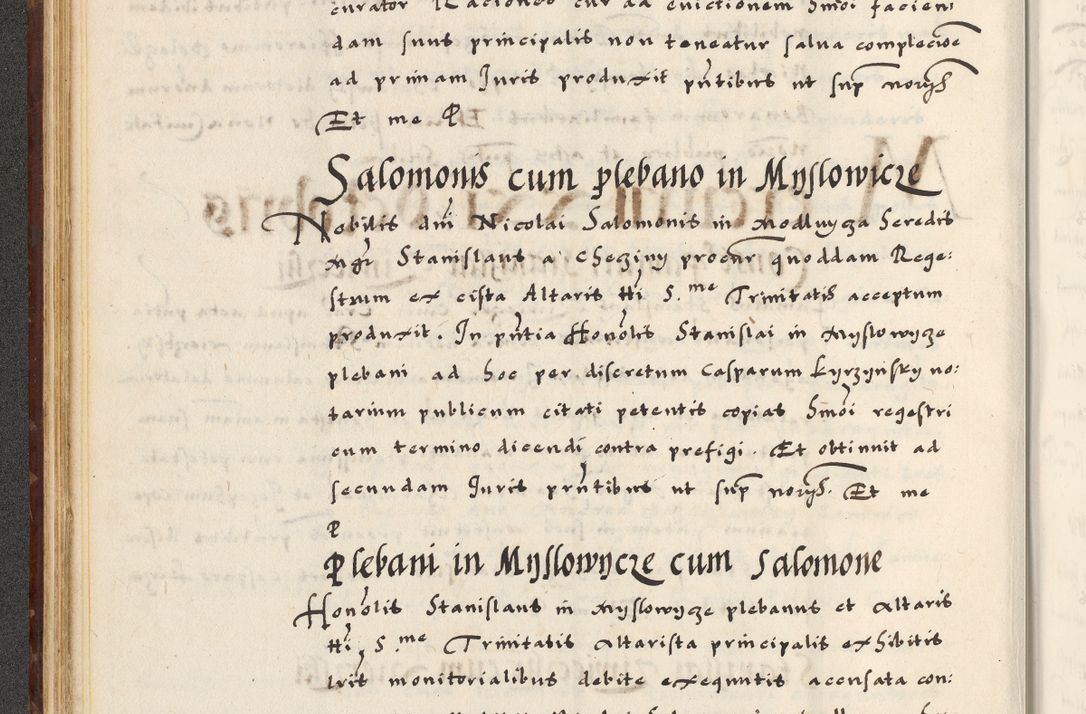 curator Raciones cur ad evictionem hmõi facien
dam suus principalis non teneatur salva complecõe
ad primam Juris produxit pñtibus ut sup norys
Et me P
Salomonis cum plebano in Myslowicze
Nobilis dñi Nicolai Salomonis in Modlnycza heredis
Mgr Stanislaus a Checziny procur quoddam Rege:
strum ex cista Altaris tti S.me Trinitatis acceptum
produxit. In pñtia Honolis Stanislai in Myslowycze
plebani ad hoc per discretum Casparum Kyrzynsky no:
tarium publicum citati petentis copias hmõi regestri
cum termino dicendi contra prefigi. Et obtinuit ad
secundam Juris prñtibus ut sup norys. Et me
P
Plebani in Myslowycze cum Salomone
Honolis Stanislaus in Myslowycze plebanus et Altaris
tti S.me Trinitatis Altarista principalis exhibitis
lris monitorialibus debite exequutis accusata con: